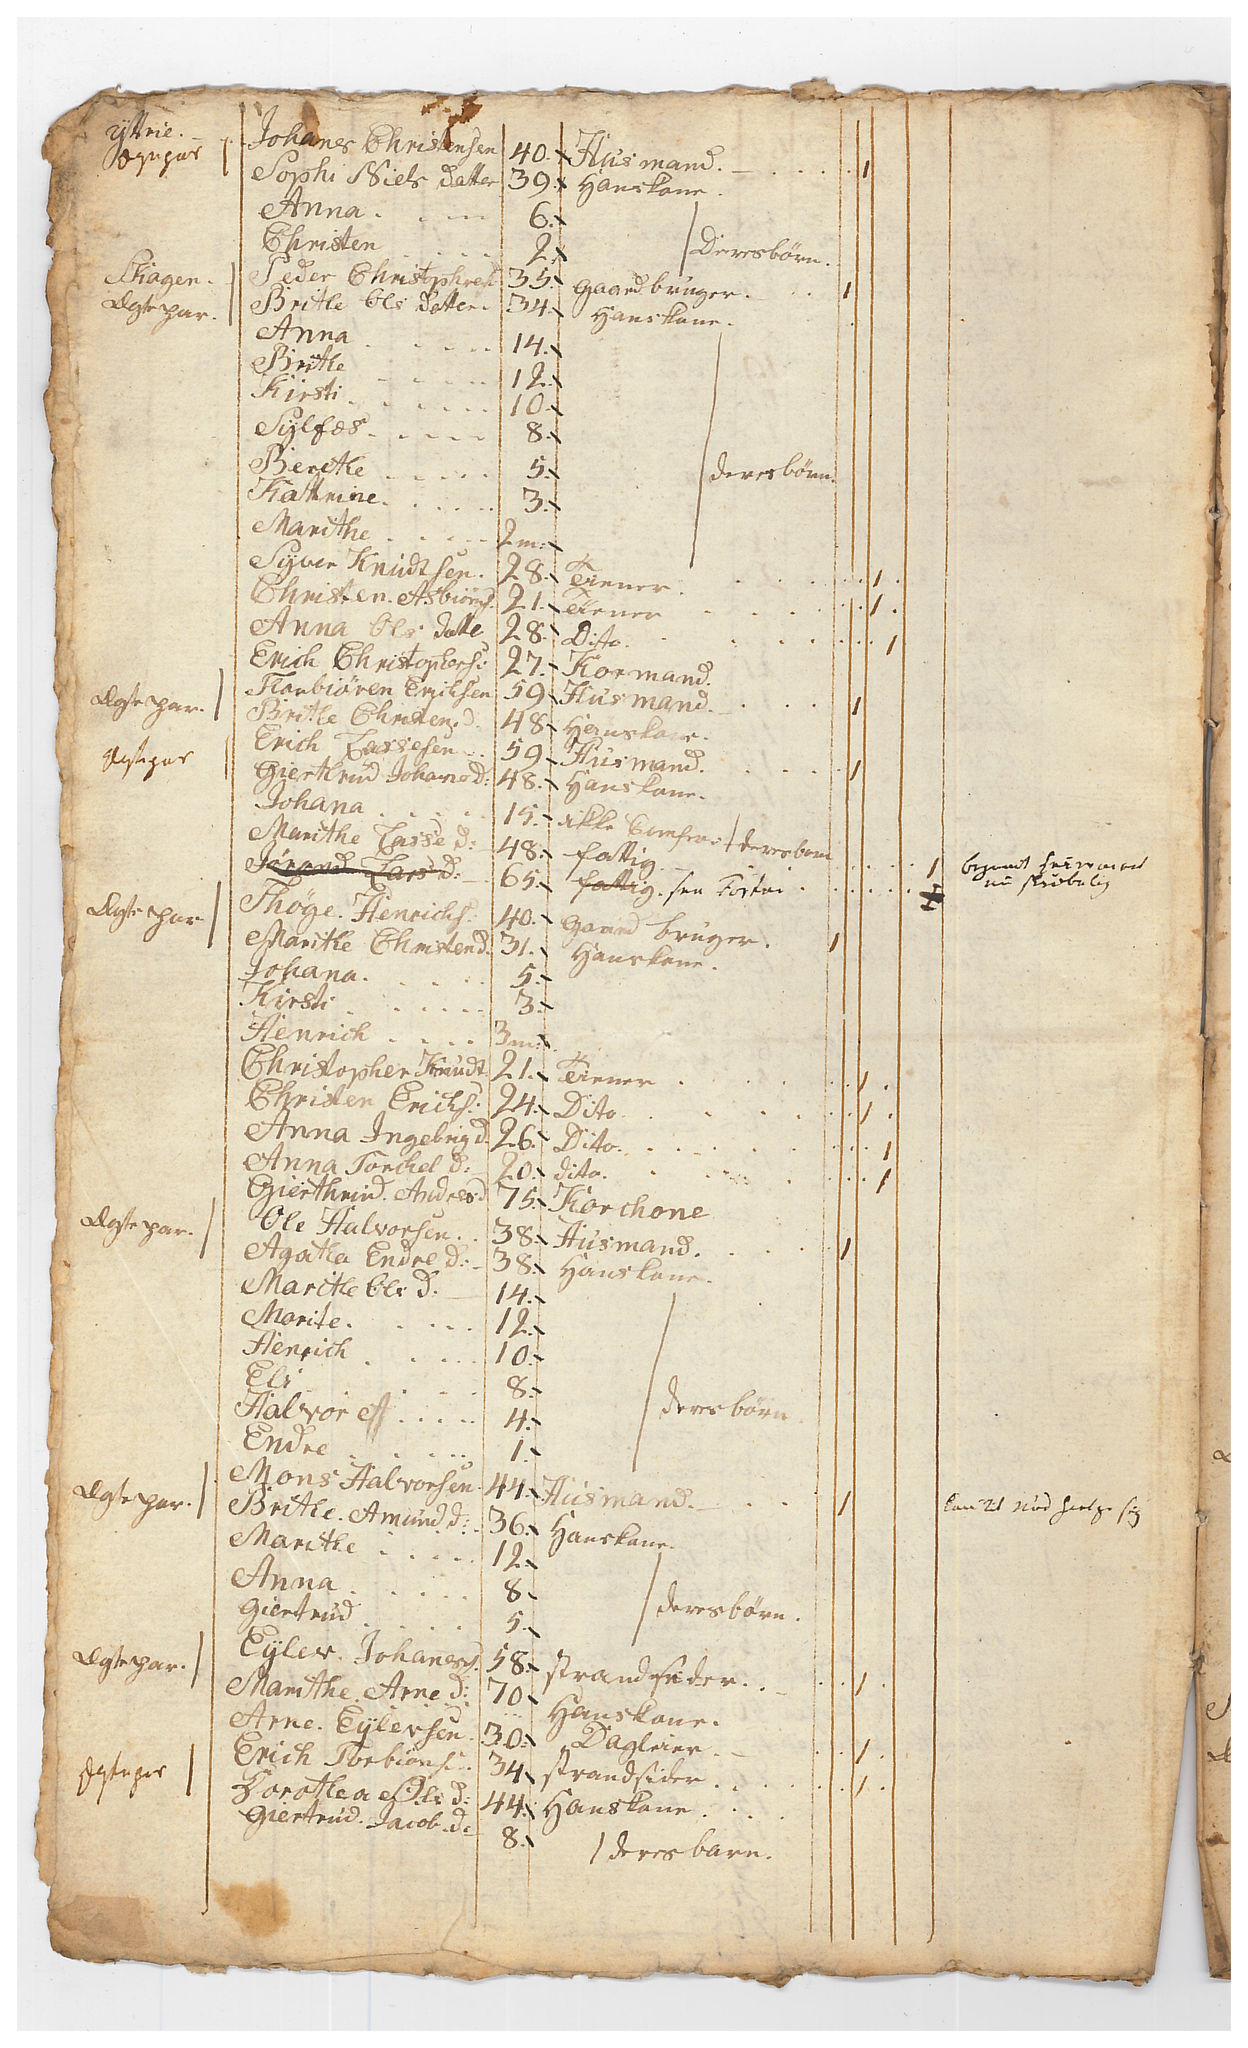 yttrie. Johanes Christensen 40. Husmand. 1
Ægtepar Sophi Niels datter 39. Hanskone.
Anna 6.
Christen 2. Deresbørn.
Skagen. Peder Christophers. 35. gaardbruger. 1
Ægtepar. Brithe Ols datter. 34. Hanskone.
Anna 14.
Brithe 12.
Kirsti 10.
Sylfæs 8.
Berethe 5. deresbørn.
Kattrine. 3.
Marithe 2 m:
Syver Knudtsen. 28. Tiener. 1
Christen Asbiörns. 21. Tiener 1
Anna Ols datte 28. Dito. 1
Erich Christophers: 27. Kormand.
Ægtepar. Torbiören Erichsen 59 Husmand. 1
Brithe Christen. d. 48 Hanskone.
Ægtepar Erich Lassesen 59 Husmand. 1
Gierthrud Johans d: 48. Hanskone.
Johana 15. ikke Comfere deresbarn
Marithe Lasse d: 48. fattig 1
Lars d: 65. fattig. 1
Ægtepar Thøge. Henrichs. 40. gaard bruger. 1
Marithe Christend. 31. Hanskone.
Johana. 5.
Kirsti 3.
Henrich 3 m:
Christopher Knudt. 21. Tiener 1
Christen Erichs: 24. Dito. 1
Anna Ingebrigd. 26. Dito. 1
Anna Torchel d: 20. dito. 1
Gierthrud. Andresd 75. Korchone
Ægtepar. Ole Halvorsen. 38. Husmand. 1
Agatha Endre d: 38. Hanskone.
Marithe Ols d: 14.
Marite. 12.
Henrich 10.
Eli 8.
Halvor 4. deresbørn.
Endre 1.
Ægtepar. Mons Halvorsen. 44. Husmand. 1 kan til nød hielpe sig
Brithe. Amund d: 36. Hanskone.
Marithe 12.
Anna 8
Giertrud 5. deresbørn.
Ægtepar. Eyler. Johaness. 58. strandsider. 1
Marithe Arne d: 70 Hanskone.
Arne. Eylersen. 30. Dagleier. 1
Ægtepar Erich Torbiörns: 34 strandsider. 1
Dorothea Ols d: 44. Hanskone.
Giertrud. Jacob. d: 8. deres barn.